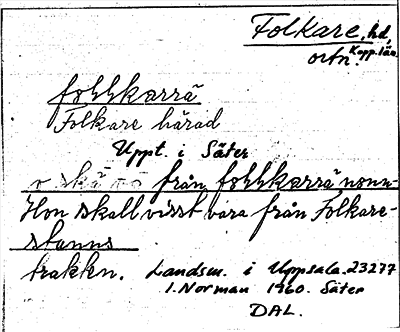 Folkare, hd,
Kopp. län.
ortn.
follkarrä
Folkare härad
Uppt. i Säter
från follkarrä nonn-
Hon skall visst vara från Folkare-
stanns
trakten. Landsm. i Uppsala. 23277
I. Norman 1960. Säter
DAL.